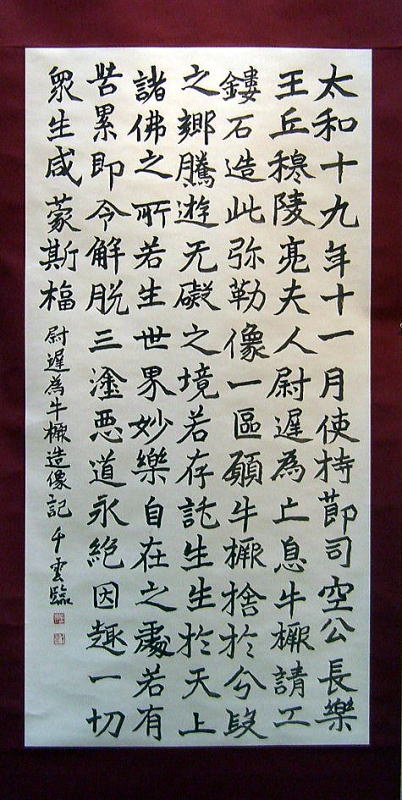 太和十九年十一月使持莭司空公長樂
王丘穆陵亮夫人尉遲為亡息牛橛請工
鏤石造此弥勒像一區願牛橛捨於分段
之鄉騰遊无礙之境若存託生生於天上
諸佛之所若生世界妙樂自在之處若有
苦累即令解脱三塗惡道永絶因趣一切
衆生咸蒙斯福 尉遲為牛橛造像記 千雲臨